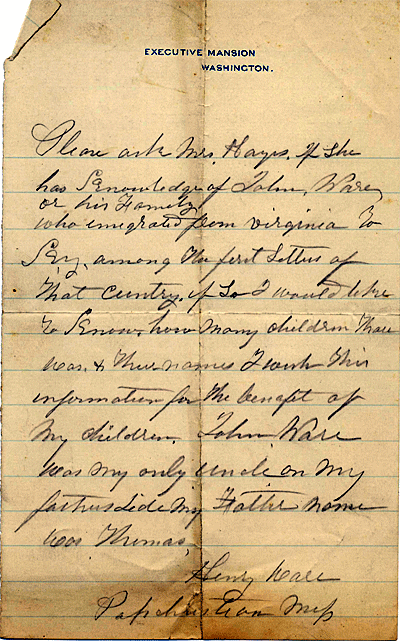 EXECUTIVE MANSION
WASHINGTON.
Please ask Mrs. Hays. if she
has Knowledge of John, Ware,
or his Family
who emigrated from virginia to
Ky, among the first Settlers of
that Country, if So I would like
to Know, how many children thare
was. & thur names I want this
information for the benefit of
My children. John Ware
was my only uncle on my
fathers Side My Father name
was Thomas,
Henry Ware
Pass christian Miss